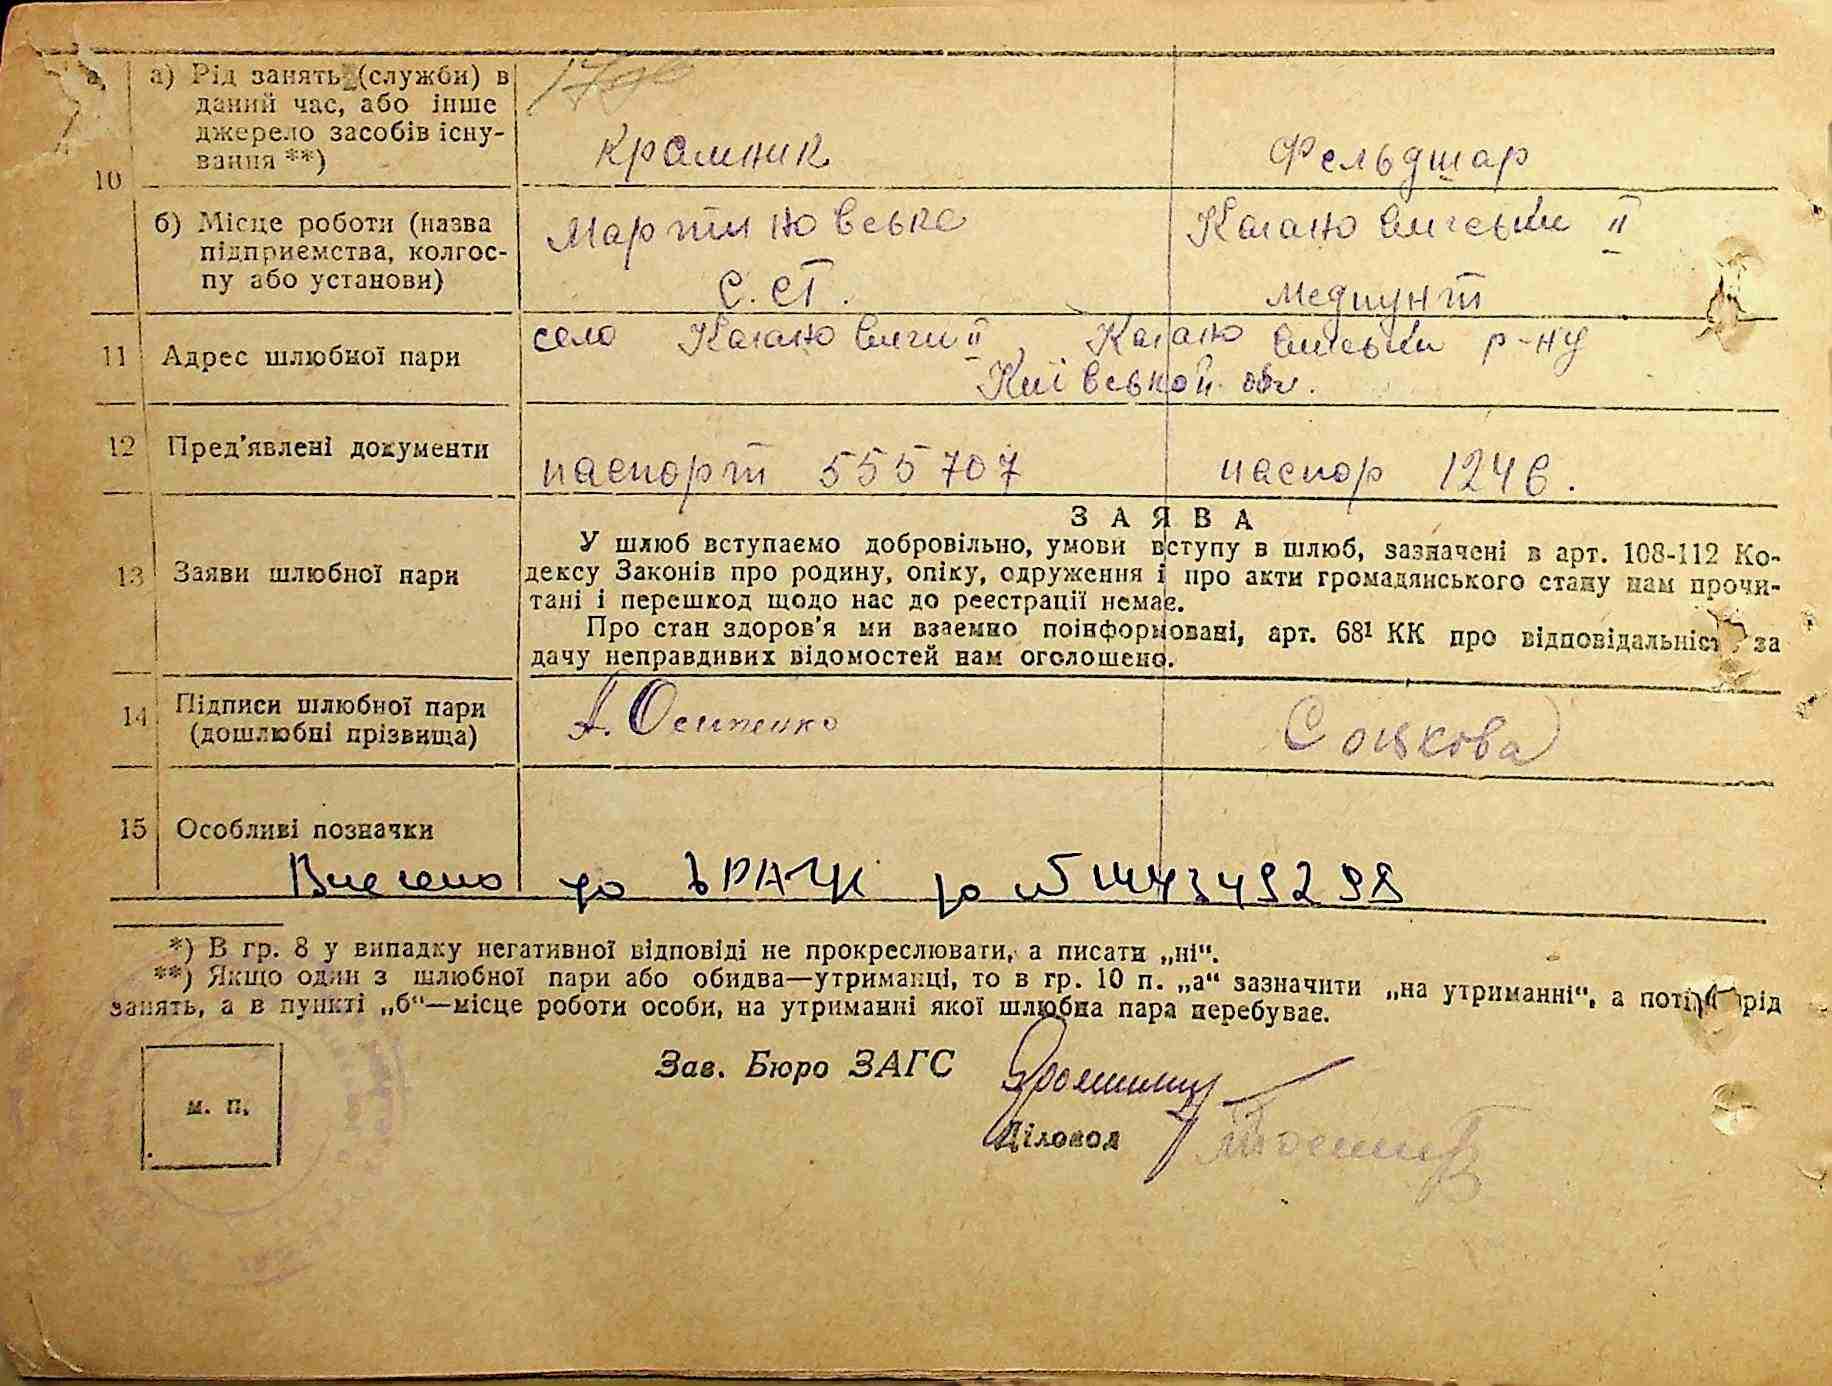 10 а) Рід занять (служби) в даний час, або інше джерело засобів існування **)
Крамник Фельдшар
б) Місце роботи (назва підприємства, колгоспу або установи)
Мартиновське Кагановичськи II
С.СТ. Медпункт
11 Адрес шлюбної пари
село Кагановичи II Кагановичськи р-ну
Київськой обл.
12 Пред'явлені документи
паспорт 555707 паспор 1246.
13 Заяви шлюбної пари
ЗАЯВА
У шлюб вступаємо добровільно, умови вступу в шлюб, зазначені в арт. 108-112 Ко-
дексу Законів про родину, опіку, одруження і про акти громадянського стану нам прочи-
тані і перешкод щодо нас до реестрації немає.
Про стан здоров'я ми взаємно поінформовані, арт. 68¹ КК про відповідальніст за
дачу неправдивих відомостей нам оголошено.
14 Підписи шлюбної пари
(дошлюбні прізвища)
А. Осипенко Соцкова
15 Особливі позначки
Внесено до ДРАЦС за №
*) В гр. 8 у випадку негативної відповіді не прокреслювати, а писати „ні“.
**) Якщо один з шлюбної пари або обидва—утриманці, то в гр. 10 п. „а“ зазначити „на утриманні“, а потім рід
занять, а в пункті „б“—місце роботи особи, на утриманні якої шлюбна пара перебуває.
Зав. Бюро ЗАГС
м. п.
Діловод